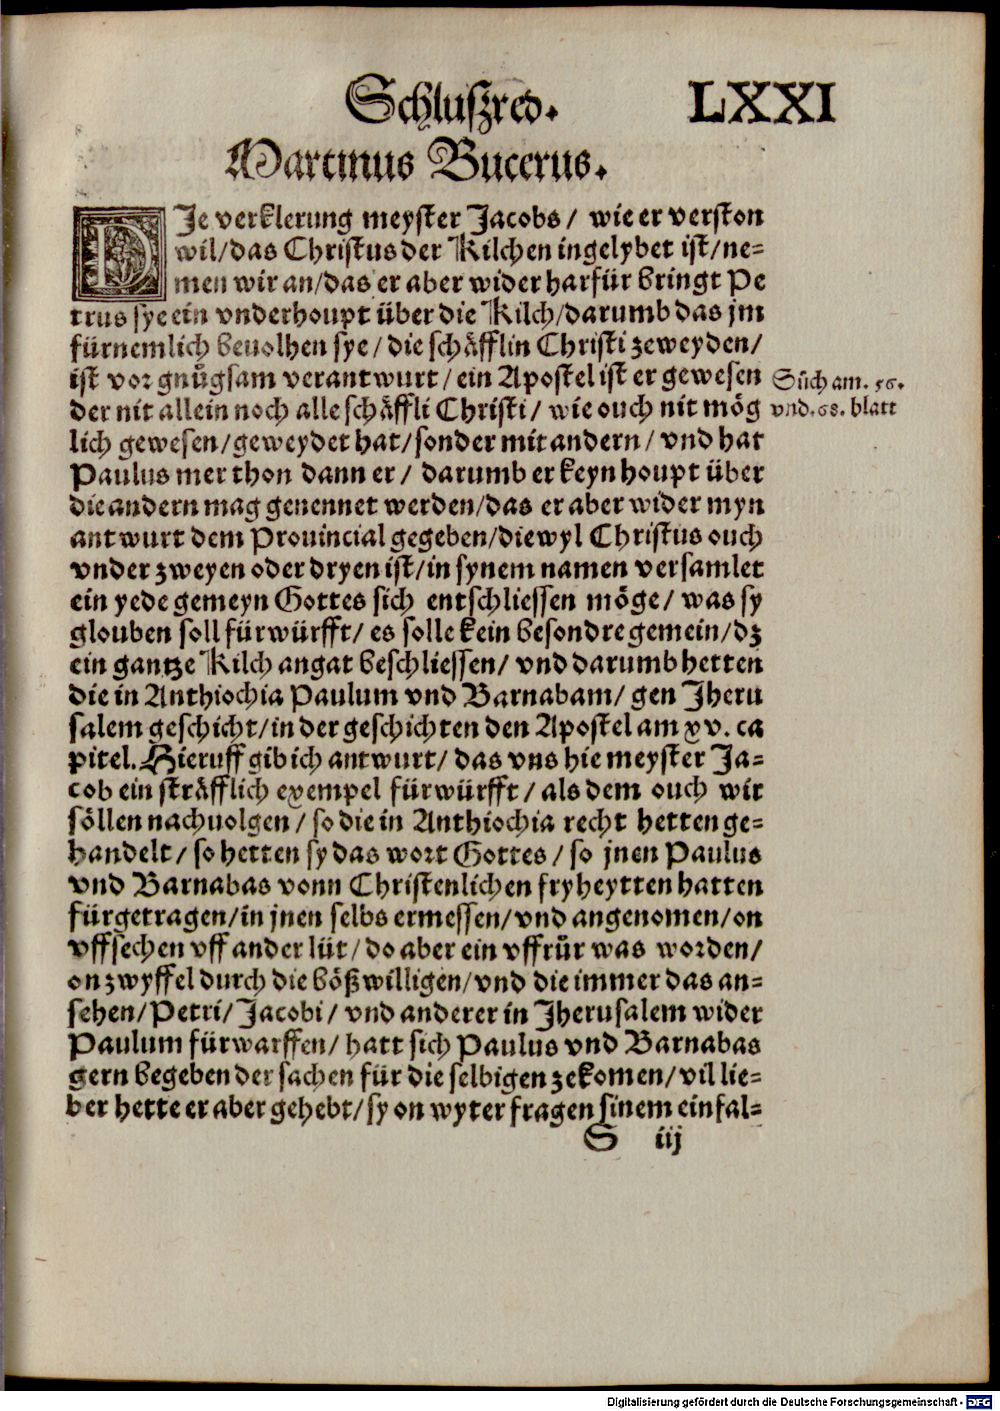 Schluſzred. LXXI
Martinus Bucerus.
DJe verklerung meyſter Jacobs / wie er verſton
wil/das Chriſtus der Kilchen ingelybet iſt/ne=
men wir an/das er aber wider harfür bringt Pe
trus ſye ein vnderhoupt über die Kilch/darumb das jm
fürnemlich beuolhen ſye / die ſchäfflin Chriſti ze weyden/
iſt vor gnuͤgſam verantwurt / ein Apoſtel iſt er geweſen
Suͦch am. 56.
der nit allein noch alle ſchäffli Chriſti / wie ouch nit mög
vnd. 68. blatt
lich geweſen/geweydet hat/ſonder mit andern / vnd hat
Paulus mer thon dann er / darumb er keyn houpt über
die andern mag genennet werden/das er aber wider myn
antwurt dem Prouincial gegeben/diewyl Chriſtus ouch
vnder zweyen oder dryen iſt/in ſynem namen verſamlet
ein yede gemeyn Gottes ſich entſchlieſſen möge / was ſy
glouben ſoll fürwürfft / es ſolle kein beſondre gemein/dz
ein gantze Kilch angat beſchlieſſen / vnd darumb hetten
die in Anthiochia Paulum vnd Barnabam / gen Jheru
ſalem geſchicht/in der geſchichten den Apoſtel am xv. ca
pitel. Hieruff gib ich antwurt / das vns hie meyſter Ja=
cob ein ſträfflich exempel fürwürfft / als dem ouch wir
ſöllen nachuolgen / ſo die in Anthiochia recht hetten ge=
handelt / ſo hetten ſy das wort Gottes / ſo jnen Paulus
vnd Barnabas vonn Chriſtenlichen fryheytten hatten
fürgetragen/in jnen ſelbs ermeſſen/vnd angenomen/on
vffſechen vff ander lüt / do aber ein vffruͤr was worden/
on zwyffel durch die bößwilligen/vnd die immer das an=
ſehen/Petri/Jacobi / vnd anderer in Jheruſalem wider
Paulum fürwarffen / hatt ſich Paulus vnd Barnabas
gern begeben der ſachen für die ſelbigen ze komen/vil lie=
ber hette er aber gehebt/ſy on wyter fragen ſinem einfal=
S iij
Digitalisierung gefördert durch die Deutsche Forschungsgemeinschaft - DFG